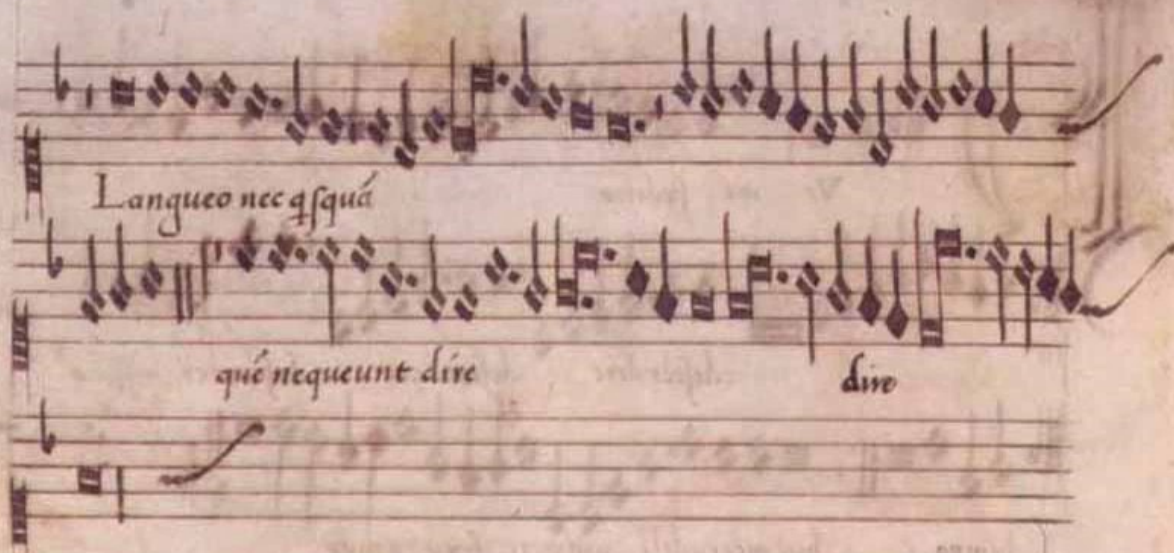 Langueo nec qsquā
quē nequeunt dire dire